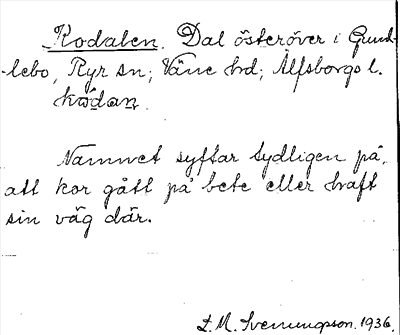 Kodalen. Dal österöver i Grund-
-lebo, Ryr sn; Väne hd; Älfsborgs l.
kωdan.
Namnet syftar tydligen på,
att kor gått på bete eller haft
sin väg där.
L. M. Svenungsson. 1936.